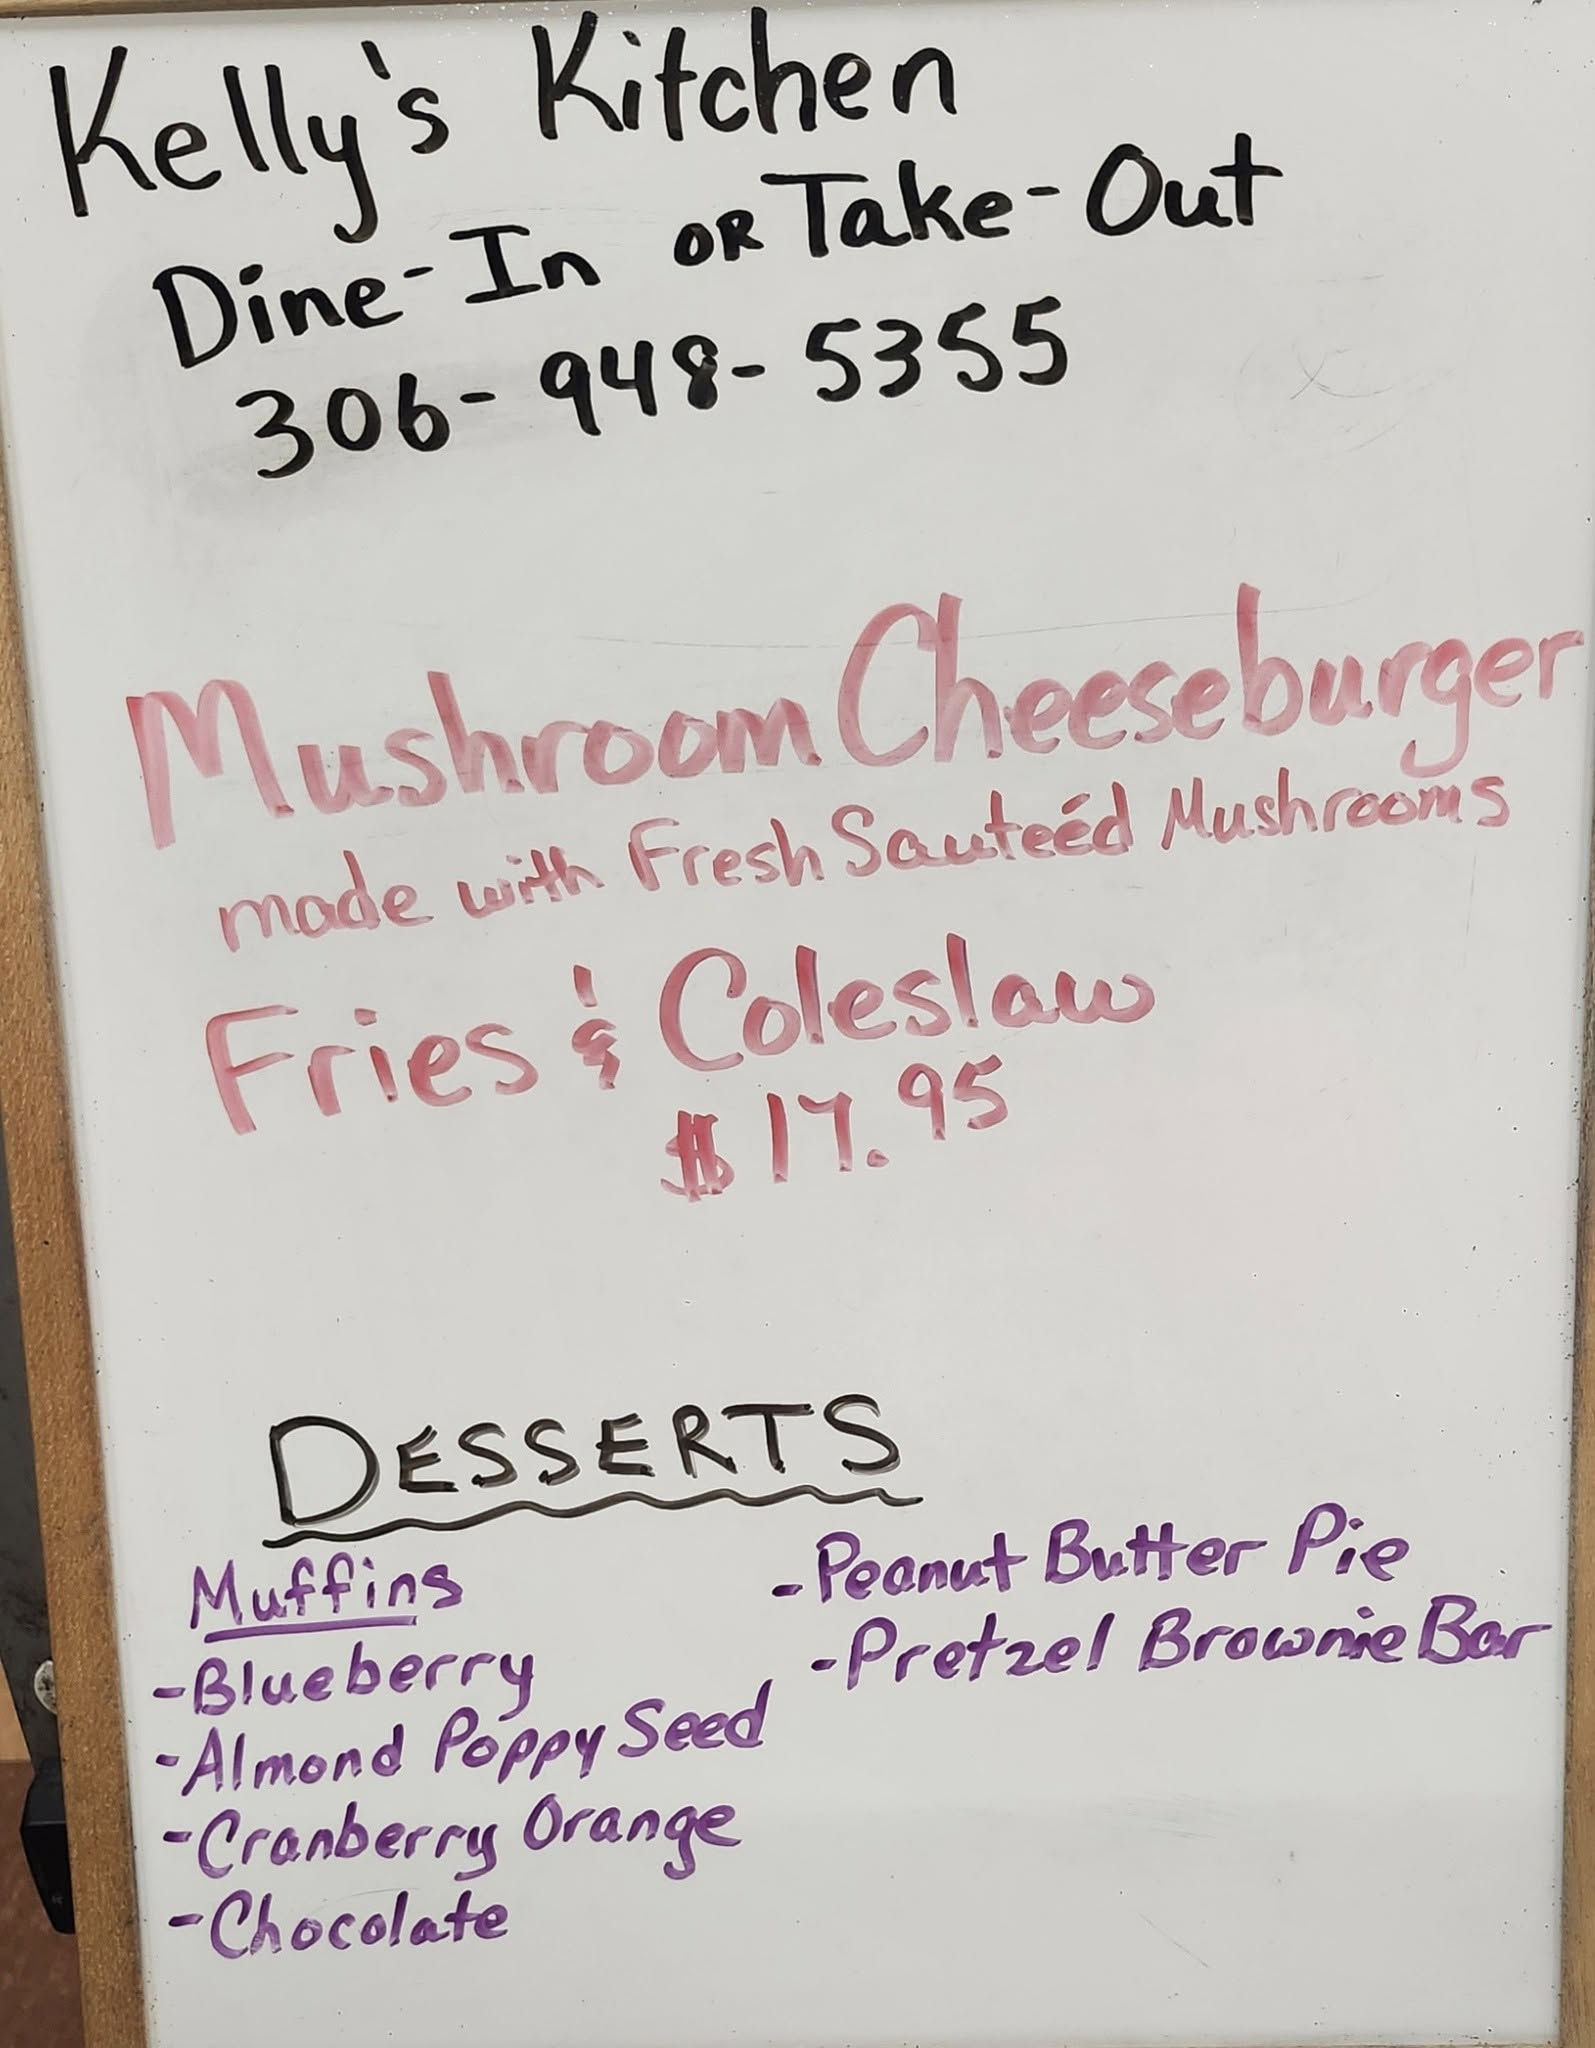 Kelly's Kitchen
Dine-In OR Take-Out
306-948-5355
Mushroom Cheeseburger
made with Fresh Sauteéd Mushrooms
Fries & Coleslaw
$17.95
DESSERTS
Muffins
-Blueberry
-Almond Poppy Seed
-Cranberry Orange
-Chocolate
-Peanut Butter Pie
-Pretzel Brownie Bar